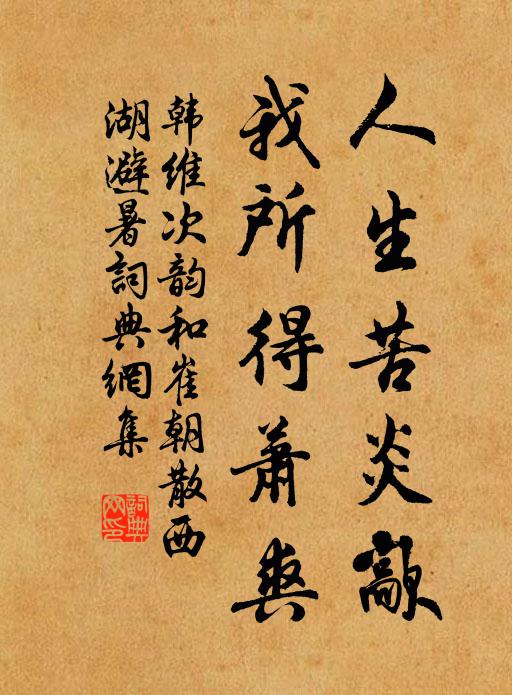 人生苦炎歊
我所得萧爽
韩维次韵和崔朝散西
湖避暑詞典網集
詞典
网印